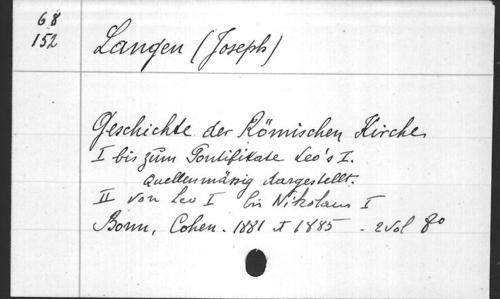 68
152
Langen (Joseph)
Geschichte der Römischen Kirche
I bis zum Pontifikate Leo's I.
Quellenmäßig dargestellt.
II von Leo I bis Nikolaus I
Bonn, Cohen. 1881 & 1885 - 2 vol 8o